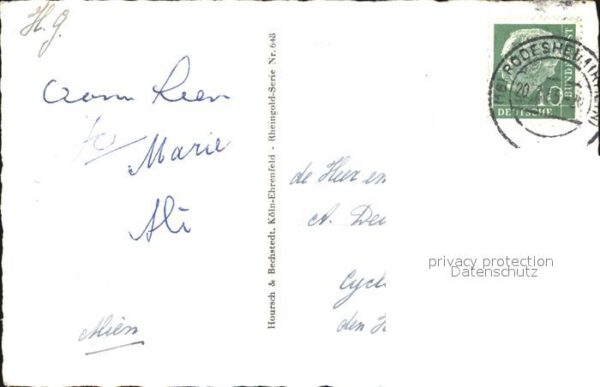 H. G.
Marie
Ali
Mien
Hoursch & Bechstedt, Köln-Ehrenfeld - Rheingold-Serie Nr. 648
DEUTSCHE BUNDESPOST
10
RÜDESHEIM (RHEIN)
20.
de Heer en
A. De
Cycl
den H
privacy protection
Datenschutz